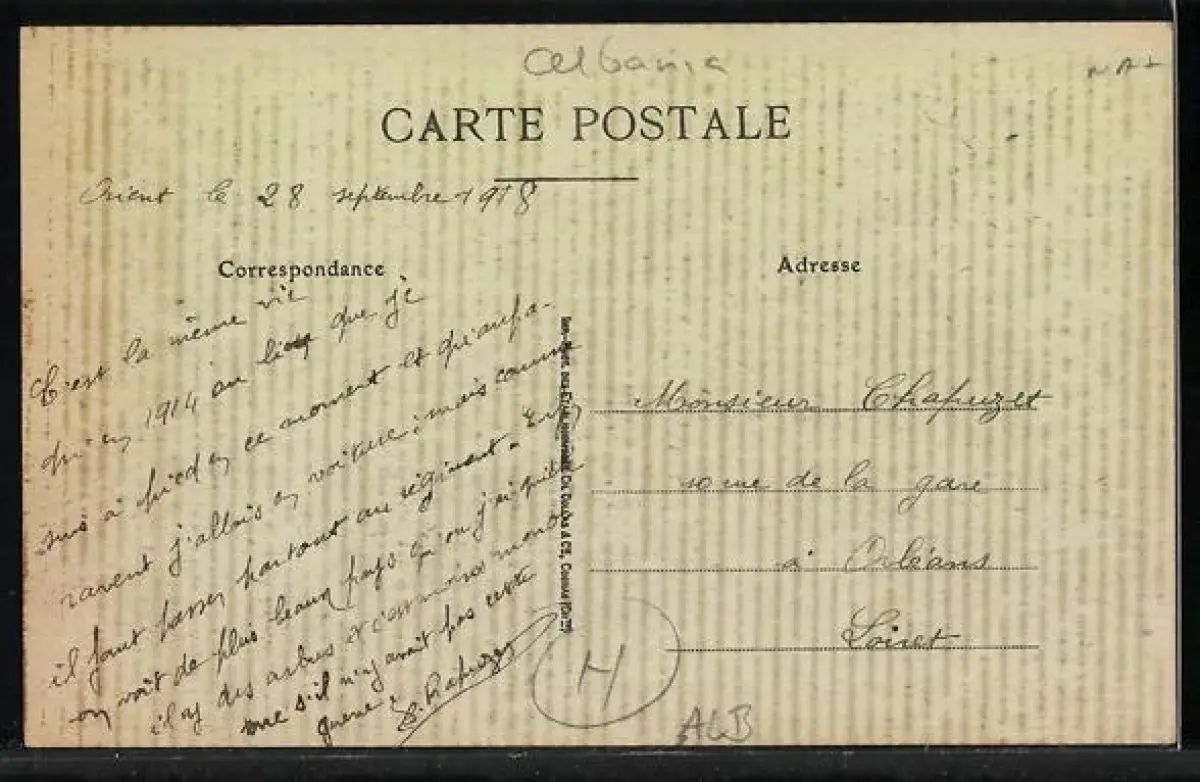 Albania
CARTE POSTALE
Orient le 28 septembre 1918
Correspondance
C'est la même vie
qu'en 1914 au lieu que je
suis à pied en ce moment et qu'aupa-
ravent j'allais en voiture; mais comme
il faut passer partout au régiment. Enfin
on voit de plus beaux pays qu'où j'ai quitté
il y des arbres et c'est moins mont
me s'il n'y avait pas cette
guerre!
Adresse
Monsieur Chapuzet
rue de la gare
à Orléans
Loiret
H
ALB